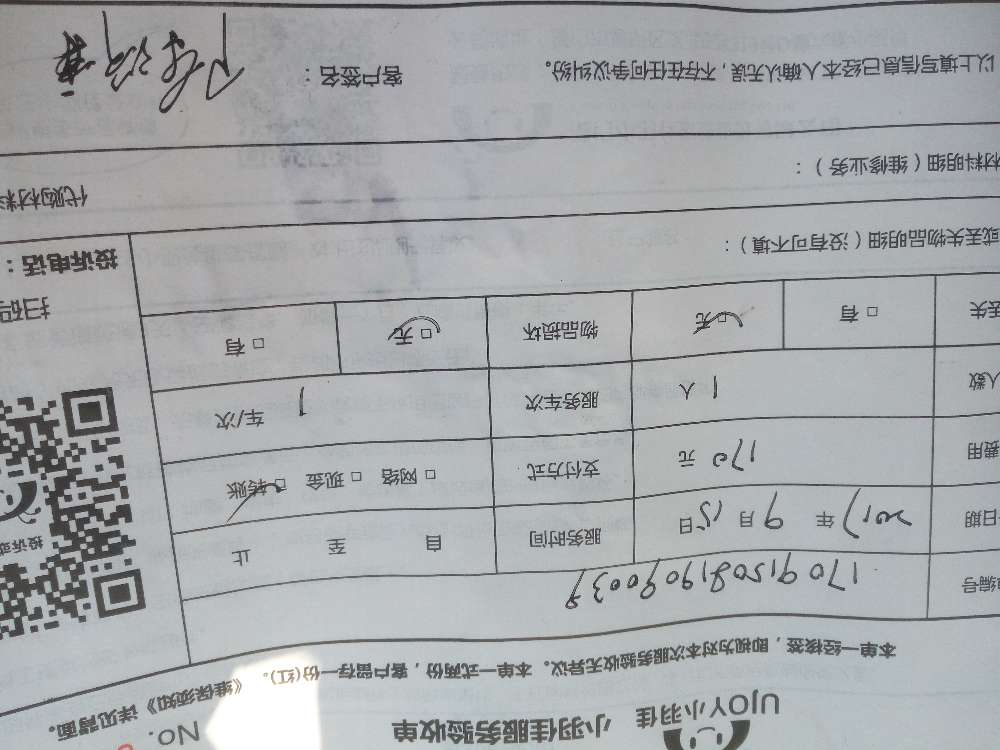 UJOY小羽佳 小羽佳服务验收单 NO.
本单一经核签，即视为对本次服务验收无异议。本单一式两份，客户留存一份(红)。《维保须知》详见背面。
编号
日期 2017 年 9 月 15 日 服务时间 自 至 止
费用 170 元 支付方式 □ 网络 □ 现金 □ 转账
人数 1 人 服务车次 1 车/次
丢失 □ 有 □ 无 物品损坏 □ 无 □ 有
投诉或
扫码
投诉电话：
或丢失物品明细（没有可不填）：
材料明细（维修业务）： 代购材料
以上填写信息已经本人确认无误，不存在任何争议纠纷。 客户签名：